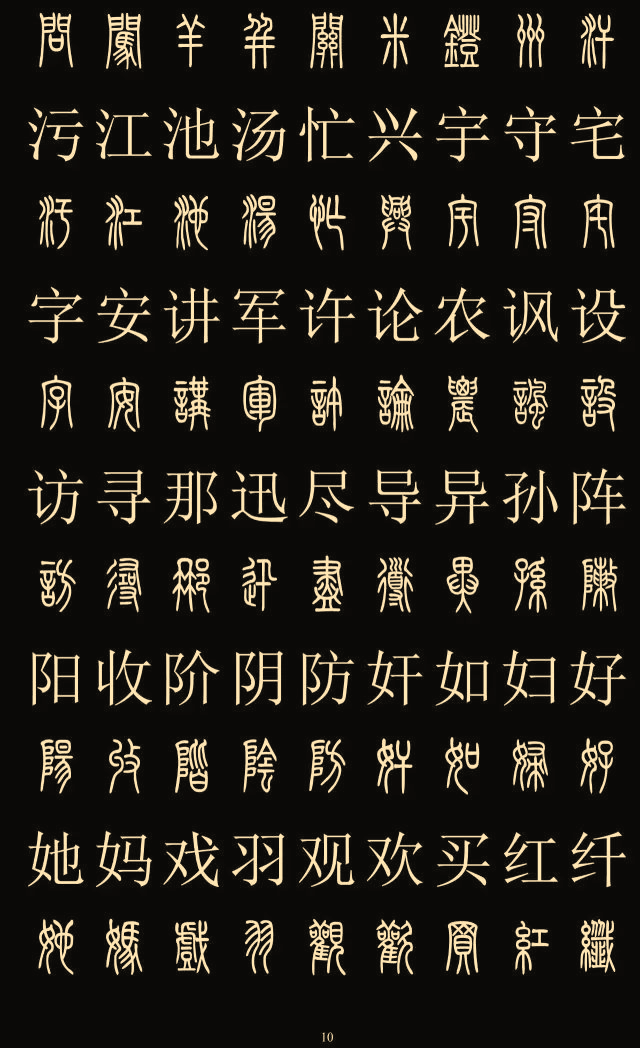 問闖羊并關米鐙州汗
污江池汤忙兴宇守宅
汙江池湯忙興宇守宅
字安讲军许论农讽设
字安講軍許論農諷設
访寻那迅尽导异孙阵
訪尋那迅盡導異孫敶
阳收阶阴防奸如妇好
陽收階陰防奸如婦好
她妈戏羽观欢买红纤
她媽戲羽觀歡買紅纖
10